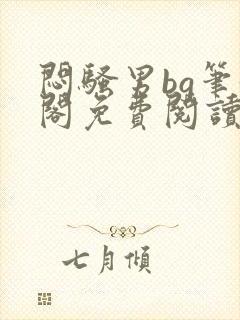 悶騷男bg筆
閣免費閱讀
七月傾